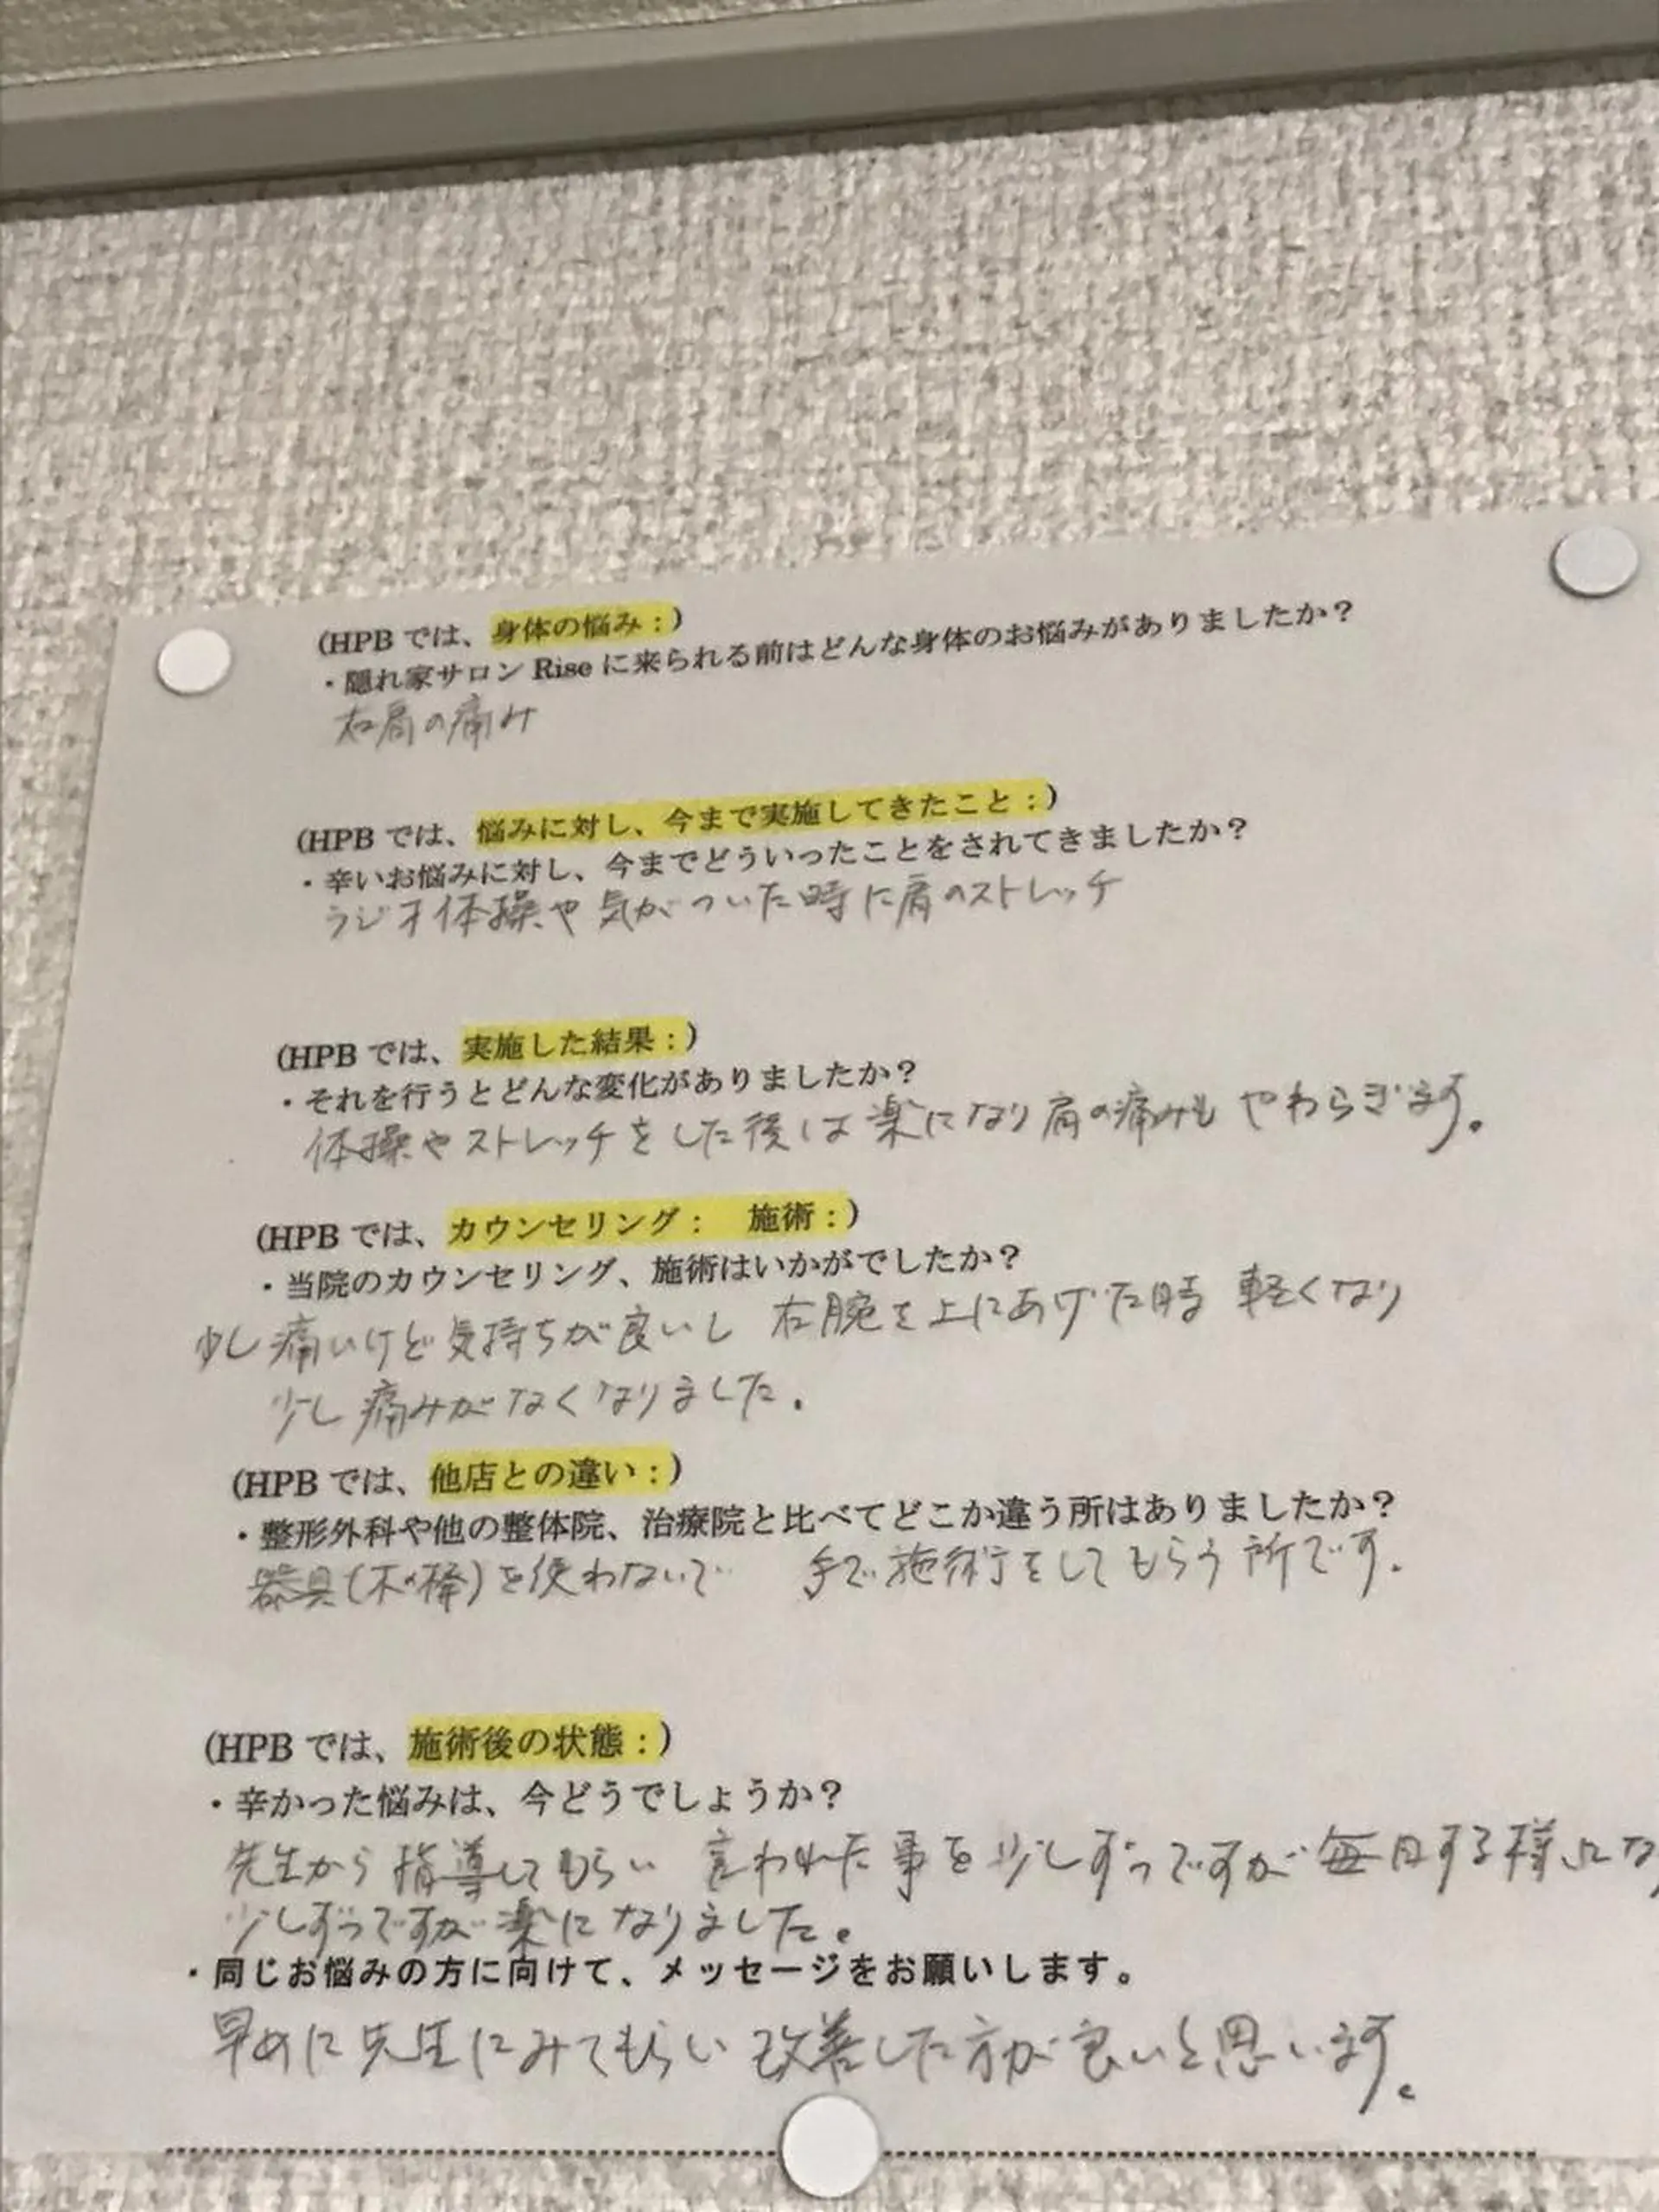 (HPB では、身体の悩み：)
・隠れ家サロン Rise に来られる前はどんな身体のお悩みがありましたか？
右肩の痛み
(HPB では、悩みに対し、今まで実施してきたこと：)
・辛いお悩みに対し、今までどういったことをされてきましたか？
ラジオ体操や気がついた時に肩のストレッチ
(HPB では、実施した結果：)
・それを行うとどんな変化がありましたか？
体操やストレッチをした後は楽になり肩の痛みもやわらぎます。
(HPB では、カウンセリング：　施術：)
・当院のカウンセリング、施術はいかがでしたか？
少し痛いけど気持ちが良いし 右腕を上にあげた時 軽くなり
少し痛みがなくなりました。
(HPB では、他店との違い：)
・整形外科や他の整体院、治療院と比べてどこか違う所はありましたか？
器具(木の棒)を使わないで 手で施術をしてもらう所です.
(HPB では、施術後の状態：)
・辛かった悩みは、今どうでしょうか？
先生から指導してもらい 言われた事を少しずつですが毎日する様にな
少しずつですが楽になりました。
・同じお悩みの方に向けて、メッセージをお願いします。
早めに先生にみてもらい改善した方が良いと思います。